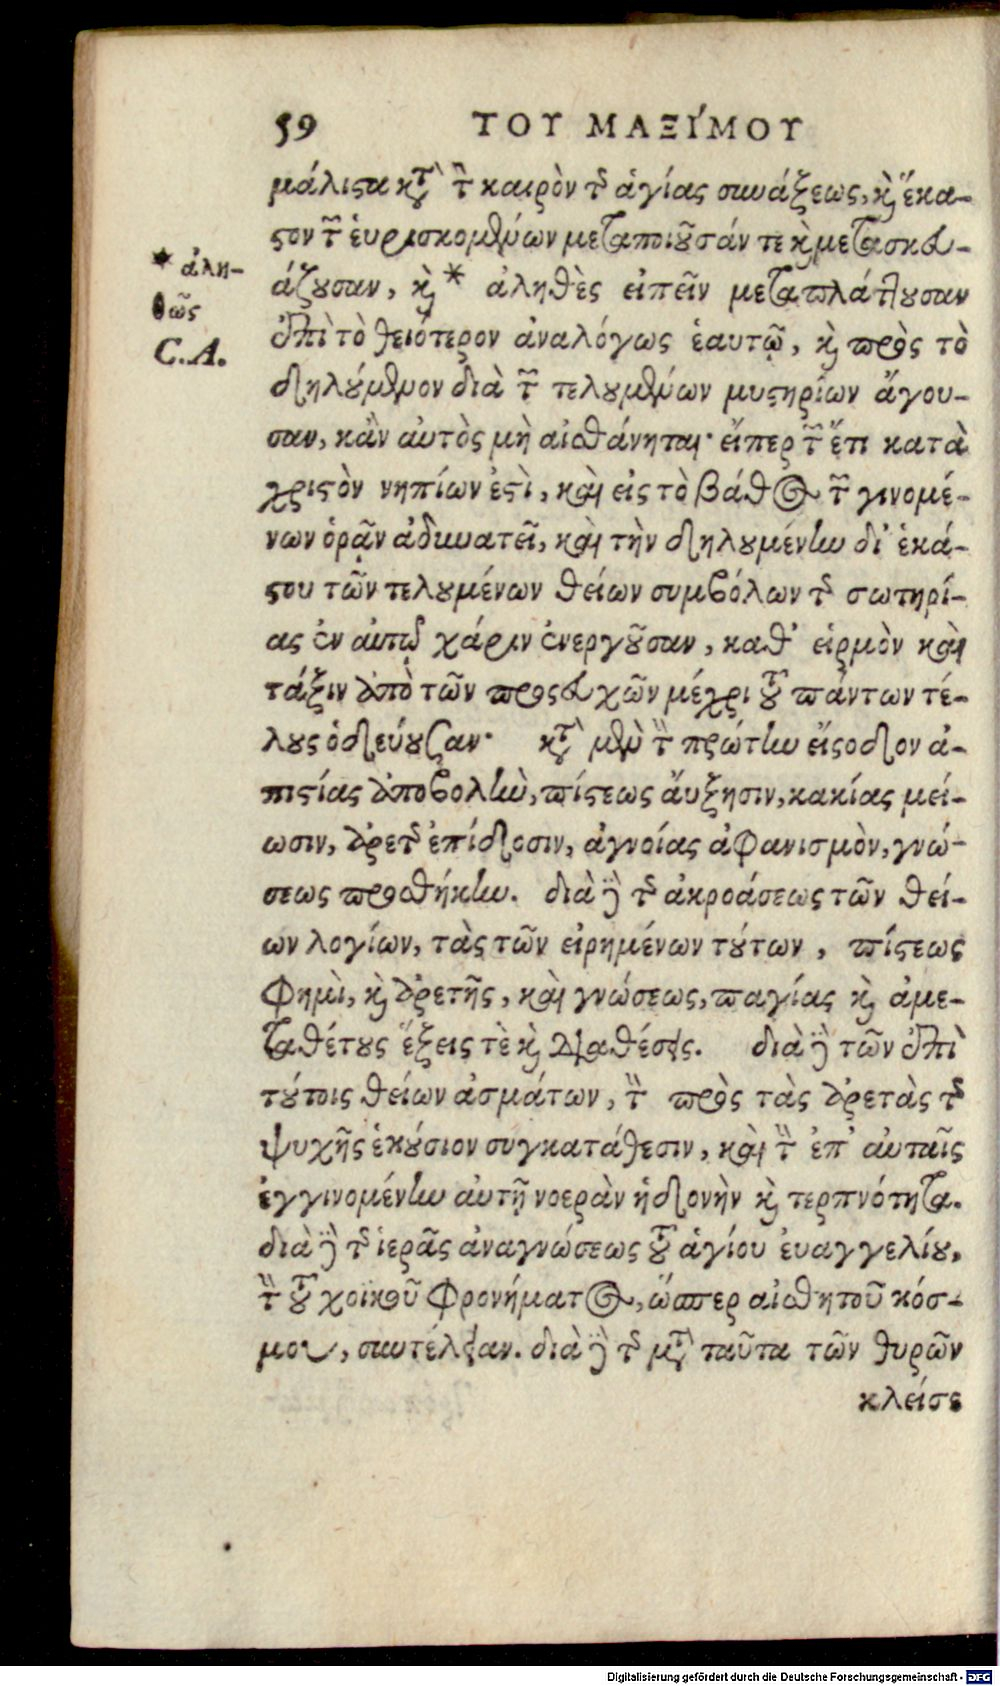 59 ΤΟΥ ΜΑΞΊΜΟΥ
μάλιϛα κτ̀ τ̀ καιρὸν τ͂ ἁγίας συνάξεως, κ̀ ἕκα-
ϛον τ͂ ἑυρισκομένων μεταποιȣ͂σάν τε κ̀ μετασκευ-
άζȣσαν, κ̀ * ἀληθὲς εἰπεῖν μεταπλάττȣσαν
ἐπὶ τὸ θειότερον ἀναλόγως ἑαυτῷ, κ̀ πρὸς τὸ
δηλȣ́μενον διὰ τ͂ τελȣμένων μυϛηρίων ἄγου-
σαν, κἂν αὐτὸς μὴ αἰσθάνηται· εἴπερ τ͂ ἔτι κατὰ
χριϛὸν νηπίων ἐϛὶ, καὶ εἰς τὸ βάθος τ͂ γινομέ-
νων ὁρᾷν ἀδυνατεῖ, καὶ τὴν δηλȣμένην δι' ἑκά-
ϛου τῶν τελȣμένων θείων συμβόλων τ͂ σωτηρί-
ας ἐν αὐτῷ χάριν ἐνεργȣ͂σαν, καθ' εἱρμὸν καὶ
τάξιν ἀπὸ τῶν προσευχῶν μέχρι τȣ͂ πάντων τέ-
λȣς ὁδεύȣσαν· κτ̀ μὲν τ̀ πρώτην εἴσοδον ἀ-
πιϛίας ἀποβολὴν, πίϛεως ἄυξησιν, κακίας μεί-
ωσιν, ἀρετ͂ ἐπίδοσιν, ἀγνοίας ἀφανισμὸν, γνώ-
σεως προσθήκην. διὰ δ̀ τ͂ ἀκροάσεως τῶν θεί-
ων λογίων, τὰς τῶν εἰρημένων τȣ́των, πίϛεως
φημὶ, κ̀ ἀρετῆς, καὶ γνώσεως, παγίας κ̀ ἀμε-
ταθέτȣς ἕξεις τὲ κ̀ διαθέσεις. διὰ δ̀ τῶν ἐπὶ
τȣ́τοις θείων ἀσμάτων, τ̀ πρὸς τὰς ἀρετὰς τ͂
ψυχῆς ἑκȣ́σιον συγκατάθεσιν, καὶ τ̀ ἐπ' αὐταῖς
ἐγγινομένην αὐτῇ νοερὰν ἡδονὴν κ̀ τερπνότητα.
διὰ δ̀ τ͂ ἱερᾶς ἀναγνώσεως τȣ͂ ἁγίου ἐυαγγελίȣ,
τ̀ τȣ͂ χοϊκοῦ φρονήματος, ὥσπερ αἰσθητοῦ κόσ-
μου, συντέλειαν. διὰ δ̀ τ͂ μτ̀ ταῦτα τῶν θυρῶν
κλείσε
* ἀλη-
θῶς
C.A.
Digitalisierung gefördert durch die Deutsche Forschungsgemeinschaft - DFG